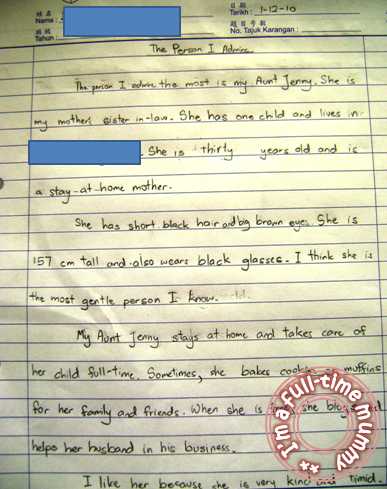 姓名
Name :
日期
Tarikh : 1-12-10
班級
Tahun :
題目号数
No. Tajuk Karangan :
The Person I Admire
The person I admire the most is my Aunt Jenny. She is
my mother's sister in-law. She has one child and lives in
. She is thirty years old and is
a stay-at-home mother.
She has short black hair and big brown eyes. She is
157 cm tall and also wears black glasses. I think she is
the most gentle person I know.
My Aunt Jenny stays at home and takes care of
her child full-time. Sometimes, she bakes cookies or muffins
for her family and friends. When she is she blogs and
helps her husband in his business.
I like her because she is very kind and timid.
I'm a full-time mummy